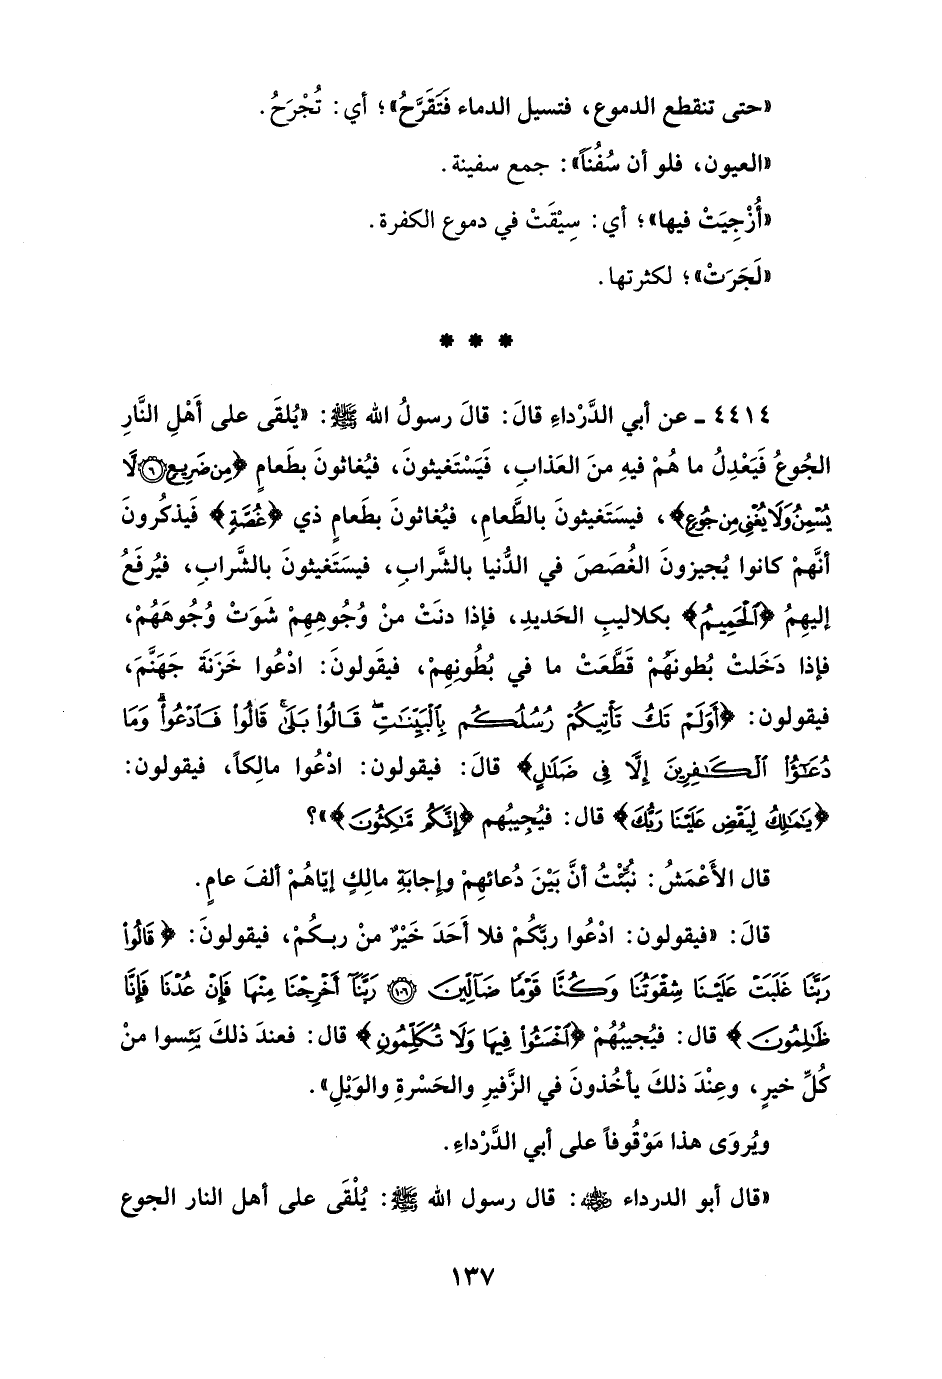 «حتى تنقطع الدموع، فتسيل الدماء فَتَقَرَّحُ»؛ أي: تُجْرَحُ.
«العيون، فلو أن سُفُناً»: جمع سفينة.
«أُزْجِيَتْ فيها»؛ أي: سِيْقَتْ في دموع الكفرة.
«لَجَرَتْ»؛ لكثرتها.
* * *
٤٤١٤ - عن أبي الدَّرْداءِ قالَ: قالَ رسولُ الله ﷺ: «يُلقَى على أَهْلِ النَّارِ
الجُوعُ فَيَعْدِلُ ما هُمْ فيهِ منَ العَذابِ، فَيَسْتَغيثونَ، فيُغاثونَ بطَعامٍ ﴿مِن ضَرِيعٍ ۝٦ لَّا
يُسْمِنُ وَلَا يُغْنِي مِن جُوعٍ﴾، فيستَغيثونَ بالطَّعامِ، فيُغاثونَ بطَعامٍ ذي ﴿غُصَّةٍ﴾ فَيذكُرونَ
أنَّهمْ كانوا يُجيزونَ الغُصَصَ في الدُّنيا بالشَّرابِ، فيستَغيثونَ بالشَّرابِ، فيُرفَعُ
إليهِمُ ﴿الْحَمِيمُ﴾ بكلاليبِ الحَديدِ، فإذا دنَتْ منْ وُجُوهِهِمْ شَوَتْ وُجُوهَهُمْ،
فإذا دَخَلتْ بُطونَهُمْ قَطَّعَتْ ما في بُطُونِهِمْ، فيقولونَ: ادْعُوا خَزَنَةَ جَهَنَّمَ،
فيقولون: ﴿أَوَلَمْ تَكُ تَأْتِيكُمْ رُسُلُكُم بِالْبَيِّنَاتِ ۖ قَالُوا بَلَىٰ ۚ قَالُوا فَادْعُوا ۗ وَمَا
دُعَاءُ الْكَافِرِينَ إِلَّا فِي ضَلَالٍ﴾ قالَ: فيقولون: ادْعُوا مالِكاً، فيقولون:
﴿يَا مَالِكُ لِيَقْضِ عَلَيْنَا رَبُّكَ﴾ قال: فيُجِيبُهم ﴿إِنَّكُم مَّاكِثُونَ﴾»؟
قال الأَعْمَشُ: نُبِّئْتُ أنَّ بَيْنَ دُعائهِمْ وإجابَةِ مالِكٍ إيّاهُمْ ألفَ عامٍ.
قالَ: «فيقولون: ادْعُوا ربَّكُمْ فلا أَحَدَ خَيْرٌ منْ ربكُمْ، فيقولونَ: ﴿قَالُوا
رَبَّنَا غَلَبَتْ عَلَيْنَا شِقْوَتُنَا وَكُنَّا قَوْمًا ضَالِّينَ ۝١٠٦ رَبَّنَا أَخْرِجْنَا مِنْهَا فَإِنْ عُدْنَا فَإِنَّا
ظَالِمُونَ﴾ قال: فيُجيبُهُمْ ﴿اخْسَئُوا فِيهَا وَلَا تُكَلِّمُونِ﴾ قال: فعندَ ذلكَ يَئِسوا منْ
كُلِّ خيرٍ، وعِنْدَ ذلكَ يأخُذونَ في الزَّفيرِ والحَسْرةِ والوَيْلِ».
ويُروَى هذا مَوْقُوفاً على أبي الدَّرْداءِ.
«قال أبو الدرداء ﵁: قال رسول الله ﷺ: يُلْقَى على أهل النار الجوع
١٣٧